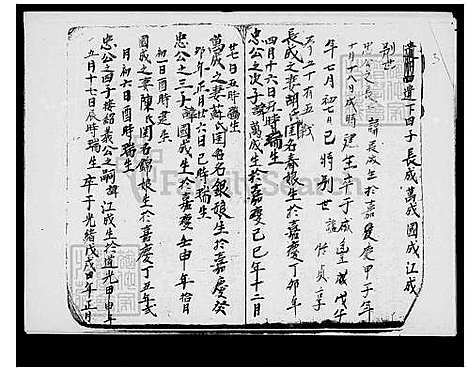 遺下四子長成萬成國成江成
別世
忠公之長子諱長成生於嘉慶甲子年
十月十八日戌時建生卒于咸豐戊午
年七月初七日巳時別世諡
享年五十有五歲
長成之妻胡氏閨名春娘生於嘉慶丁卯年
四月十六日丑時瑞生
忠公之次子諱萬成生於嘉慶己巳年十二月
廿七日丑時瑞生
萬成之妻蘇氏閨名銀娘生於嘉慶癸
卯年正月廿六日巳時瑞生
忠公之三子諱國成生於嘉慶壬申年拾月
初一日酉時建生
國成之妻陳氏閨名錦娘生於嘉慶丁丑年弍
月初六日酉時瑞生
忠公之四子接紹義公之嗣諱江成生於道光甲申年
五月十七日辰時瑞生卒于光緒戊戌四年正月
FamilySearch